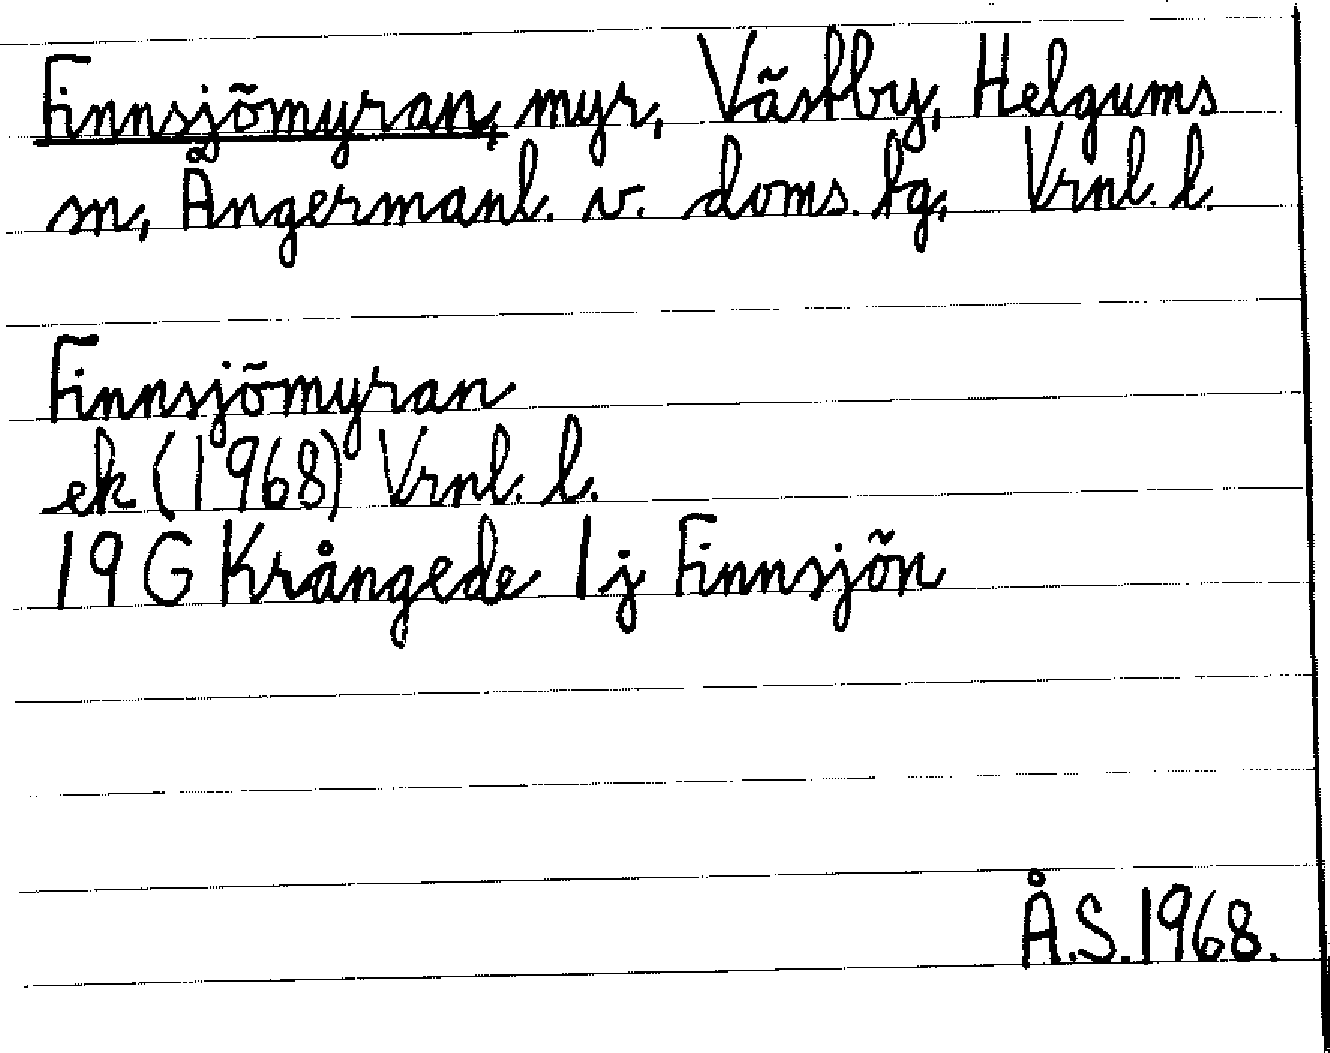 Finnsjömyran, myr, Västby, Helgums
sn, Ångermanl. v. doms. tg, Vrnl. l.
Finnsjömyran
ek (1968) Vrnl. l.
19 G Krångede 1j Finnsjön
Å.S. 1968.